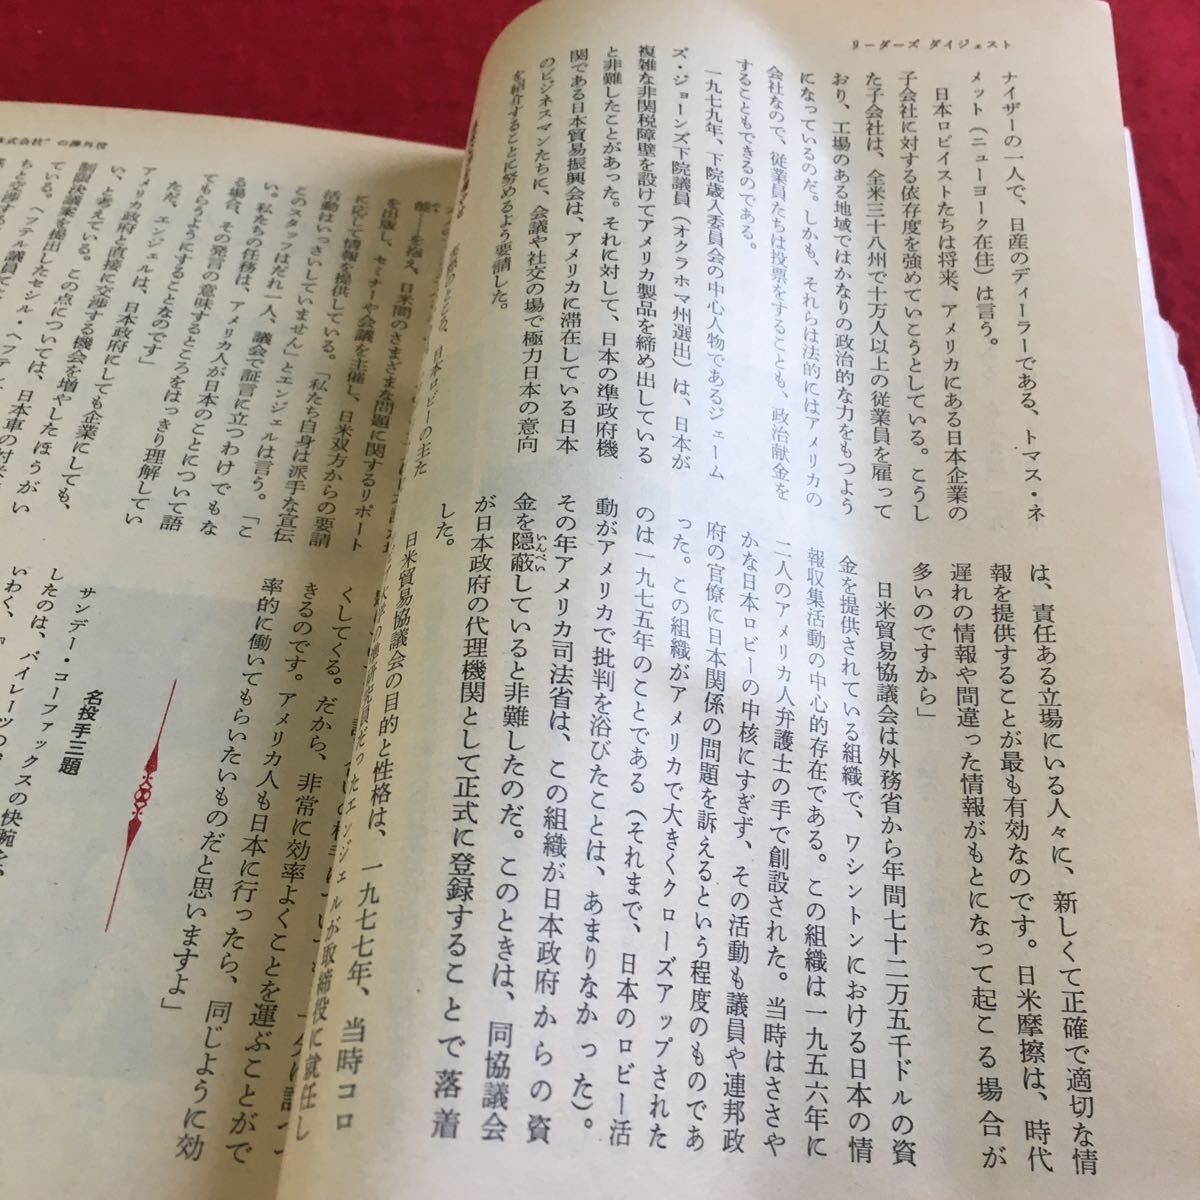 リーダーズ ダイジェスト
ナイザーの一人で、日産のディーラーである、トマス・ネ
メット（ニューヨーク在住）は言う。
日本ロビイストたちは将来、アメリカにある日本企業の
子会社に対する依存度を強めていこうとしている。こうし
た子会社は、全米三十八州で十万人以上の従業員を雇って
おり、工場のある地域ではかなりの政治的な力をもつよう
になっているのだ。しかも、それらは法的にはアメリカの
会社なので、従業員たちは投票をすることも、政治献金を
することもできるのである。
一九七九年、下院歳入委員会の中心人物であるジェーム
ズ・ジョーンズ下院議員（オクラホマ州選出）は、日本が
複雑な非関税障壁を設けてアメリカ製品を締め出している
と非難したことがあった。それに対して、日本の準政府機
関である日本貿易振興会は、アメリカに滞在している日本
のビジネスマンたちに、会議や社交の場で極力日本の意向
を紹介することに努めるよう要請した。
は、責任ある立場にいる人々に、新しくて正確で適切な情
報を提供することが最も有効なのです。日米摩擦は、時代
遅れの情報や間違った情報がもとになって起こる場合が
多いのですから」
日米貿易協議会は外務省から年間七十二万五千ドルの資
金を提供されている組織で、ワシントンにおける日本の情
報収集活動の中心的存在である。この組織は一九五六年に
二人のアメリカ人弁護士の手で創設された。当時はささや
かな日本ロビーの中核にすぎず、その活動も議員や連邦政
府の官僚に日本関係の問題を訴えるという程度のものであ
った。この組織がアメリカで大きくクローズアップされた
のは一九七五年のことである（それまで、日本のロビー活
動がアメリカで批判を浴びたことは、あまりなかった）。
その年アメリカ司法省は、この組織が日本政府からの資
金を隠蔽いんぺいしていると非難したのだ。このときは、同協議会
が日本政府の代理機関として正式に登録することで落着
した。
日米貿易協議会の目的と性格は、一九七七年、当時コロ
エンジェルが取締役に就任し
株式会社”の渉外役
日本ロビーの主た
を抱え、日米間のさまざまな問題に関するリポート
を出版し、セミナーや会議を主催し、日米双方からの要請
に応じて情報を提供している。「私たち自身は派手な宣伝
活動はいっさいしていません」とエンジェルは言う。「こ
このスタッフはだれ一人、議会で証言に立つわけでもな
い。私たちの任務は、アメリカ人が日本のことについて語
る場合、その発言の意味するところをはっきり理解してい
てもらうようにすることなのです」
ただ、エンジェルは、日本政府にしても企業にしても、
アメリカ政府と直接に交渉する機会を増やしたほうがい
い、と考えている。この点については、日本車の対米
制限決議案を提出したセシル・ヘフテ
ている。ヘフテル議員
くしてくる。だから、非常に効率よくことを運ぶことがで
きるのです。アメリカ人も日本に行ったら、同じように効
率的に働いてもらいたいものだと思いますよ」
名投手三題
サンデー・コーファックスの快腕を
したのは、パイレーツの
いわく、